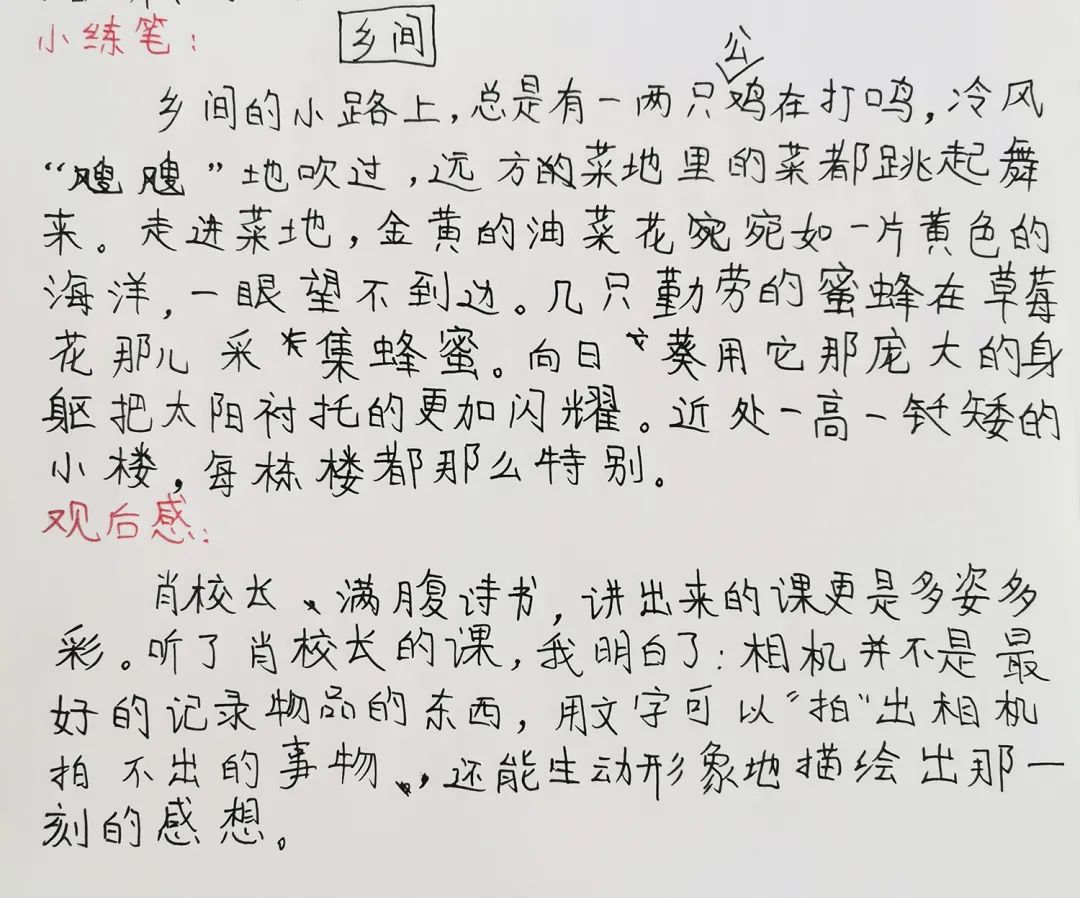 小练笔：
乡间
乡间的小路上，总是有一两只公鸡在打鸣，冷风
“飕飕”地吹过，远方的菜地里的菜都跳起舞
来。走进菜地，金黄的油菜花宛宛如一片黄色的
海洋，一眼望不到边。几只勤劳的蜜蜂在草莓
花那儿采集蜂蜜。向日葵用它那庞大的身
躯把太阳衬托的更加闪耀。近处一高一矮的
小楼，每栋楼都那么特别。
观后感：
肖校长、满腹诗书，讲出来的课更是多姿多
彩。听了肖校长的课，我明白了：相机并不是最
好的记录物品的东西，用文字可以“拍”出相机
拍不出的事物，还能生动形象地描绘出那一
刻的感想。